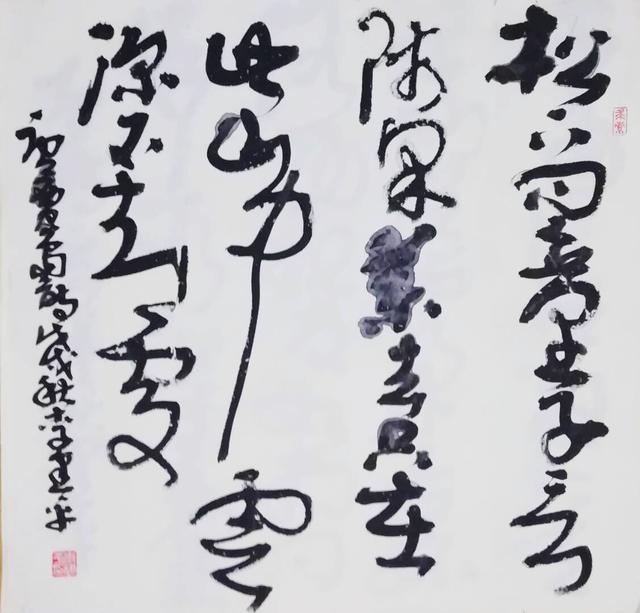 松下问童子言
师采药去只在
此山中云
深不知处
戊戌秋